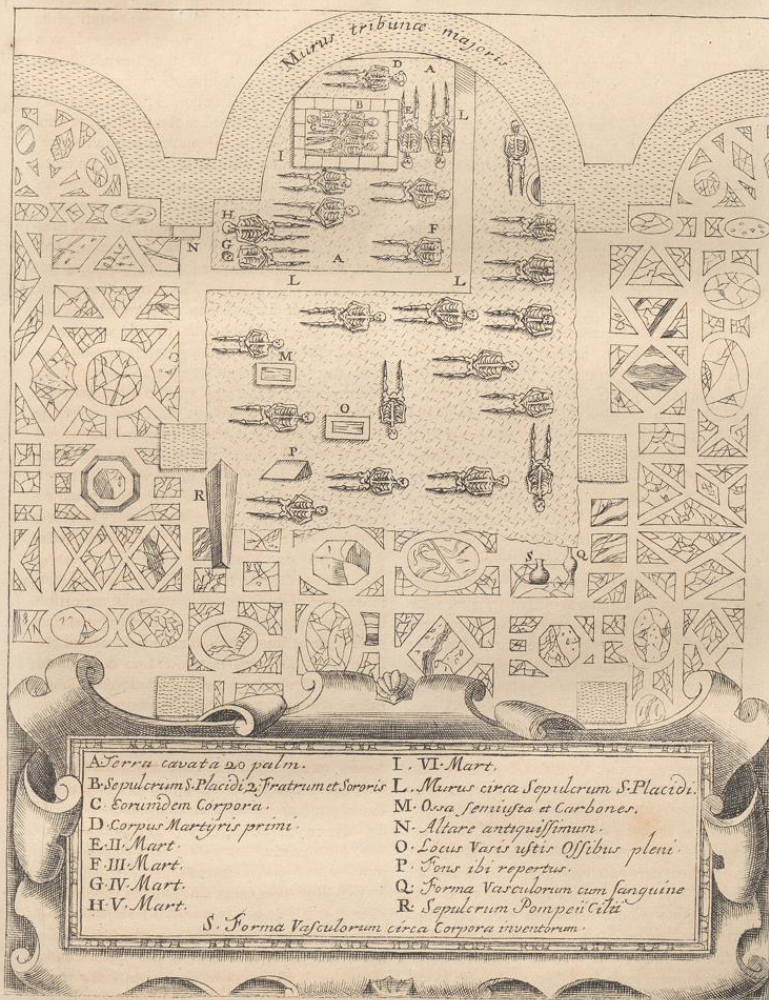 Murus tribunæ majoris
D A
B
E
L
I
H
G
F
N
A
L L
M
O
P
R
S Q
A. Terra cavata 20 palm.
B. Sepulcrum S. Placidi 2. Fratrum et Sororis
C. Eorumdem Corpora.
D. Corpus Martÿris primi.
E. II. Mart.
F. III. Mart.
G. IV. Mart.
H. V. Mart.
I. VI. Mart.
L. Murus circa Sepulcrum S. Placidi.
M. Ossa semiusta et Carbones.
N. Altare antiquissimum.
O. Locus Vasis ustis Ossibus pleni.
P. Fons ibi repertus.
Q. Forma Vasculorum cum sanguine
R. Sepulcrum Pompeii Cilii
S. Forma Vasculorum circa Corpora inventorum.